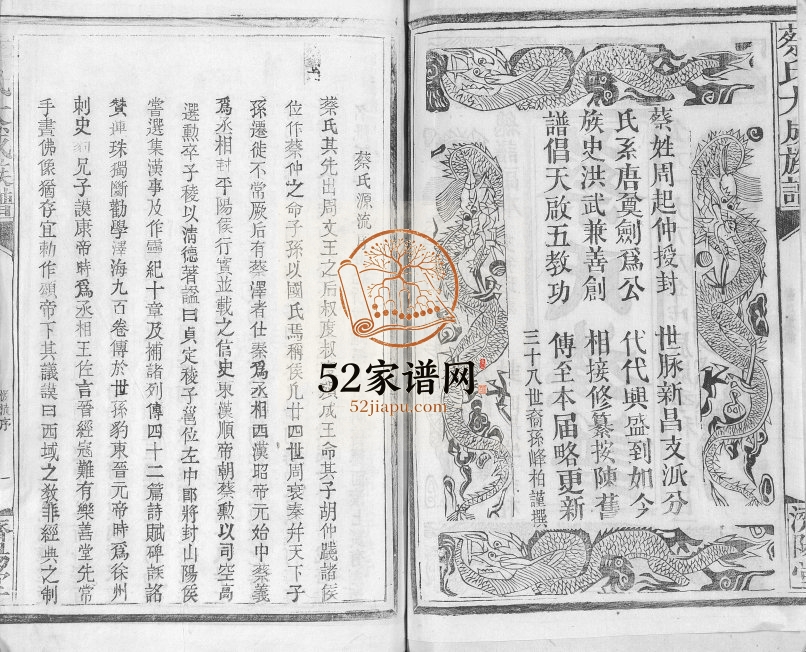 蔡氏大成族譜
濟陽堂
蔡姓周起仲授封 世脉新昌支派分
氏系唐奠劍爲公 代代興盛到如今
族史洪武兼善創 相接修纂按陳舊
譜倡天啟五教功 傳至本届略更新
三十八世裔孫峰柏謹撰
蔡氏源流
蔡氏其先出周文王之后叔度叔成王命其子胡仲踐諸侯
位作蔡仲之命子孫以國氏焉稱侯凡廿四世周衰秦幷天下子
孫遷徙不常厥后有蔡澤者仕秦爲丞相西漢昭帝元始中蔡義
爲丞相封平陽侯行實並載之信史東漢順帝朝蔡勲以司空高
選勲卒子稜以清德著謚曰貞定稜子邕位左中郎將封山陽侯
嘗選集漢事及作靈紀十章及補諸列傳四十二篇詩賦碑誄詺
贊連珠獨斷勸學澤海九百卷傳於世孫豹東晉元帝時爲徐州
刺史豹兄子謨康帝時爲丞相王佐言晉經寇難有樂善堂先常
手畫佛像猶存宜勅作頌帝下其議謨曰西域之教非經典之制
濟陽堂
52家谱网
52jiapu.com